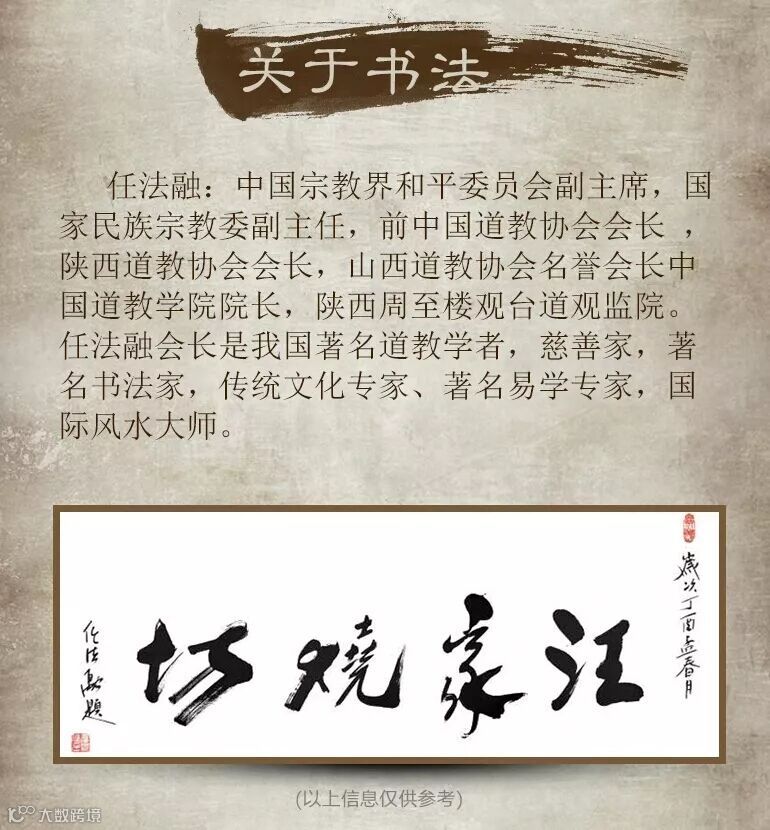 关于书法
任法融：中国宗教界和平委员会副主席，国
家民族宗教委副主任，前中国道教协会会长 ，
陕西道教协会会长，山西道教协会名誉会长中
国道教学院院长，陕西周至楼观台道观监院。
任法融会长是我国著名道教学者，慈善家，著
名书法家，传统文化专家、著名易学专家，国
际风水大师。
歲次丁酉孟春月
汪家燒坊
任法融題
(以上信息仅供参考)
大数跨境